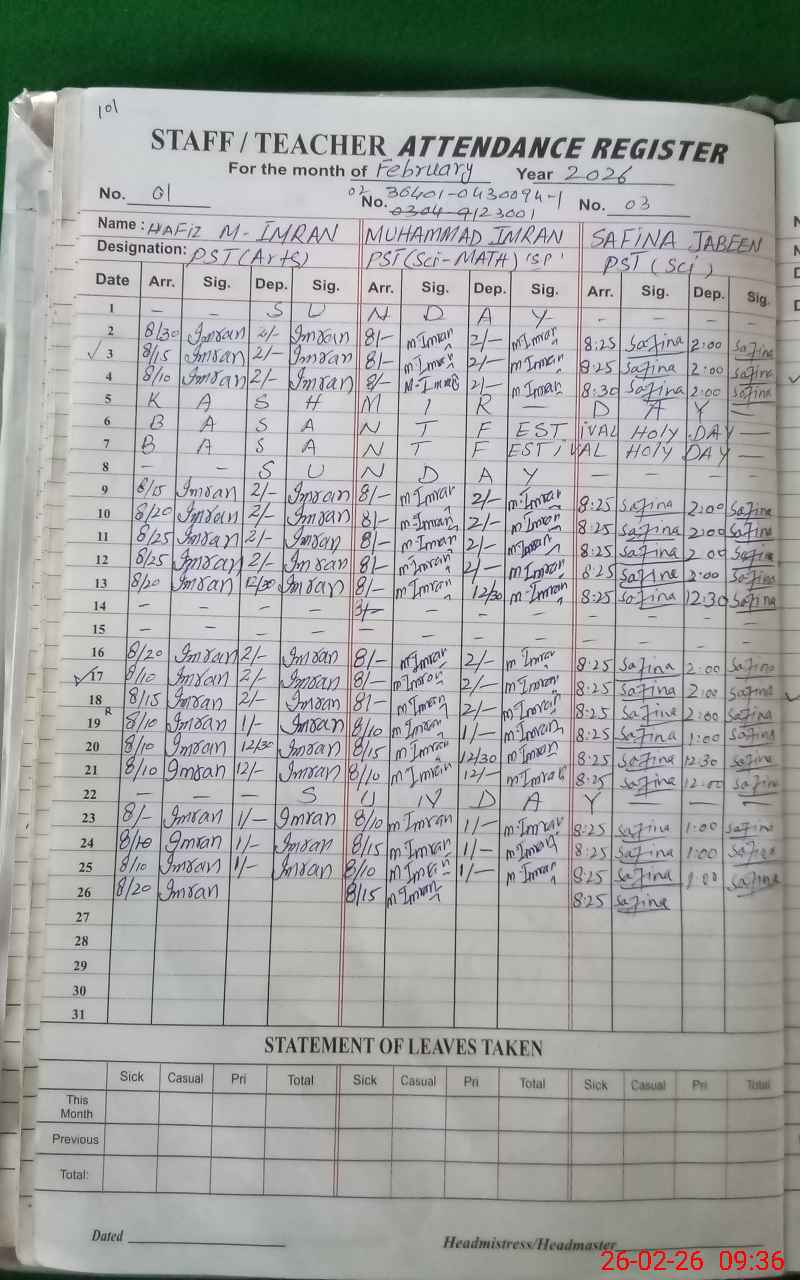 101
STAFF / TEACHER ATTENDANCE REGISTER
For the month of February Year 2026
No. 01 02 No. 36401-0430094-1 No. 03
0304-9123001
Name : HAFIZ M-IMRAN MUHAMMAD IMRAN SAFINA JABEEN
Designation: PST(Arts) PST(Sci-MATH) 'SP' PST (Sci)
Date Arr. Sig. Dep. Sig. Arr. Sig. Dep. Sig. Arr. Sig. Dep. Sig.
1 – – S U N D A Y – – – –
2 8/30 Imran 2/- Imran 8/- m Imran 2/- m Imran 8:25 Safina 2:00 Safina
3 8/15 Imran 2/- Imran 8/- m Imran 2/- m Imran 8:25 Safina 2:00 Safina
4 8/10 Imran 2/- Imran 8/- M-Imran 2/- m Imran 8:30 Safina 2:00 Safina
5 K A S H M I R – D A Y –
6 B A S A N T F EST IVAL HOLY DAY –
7 B A S A N T F ESTIVAL HOLY DAY –
8 – – S U N D A Y – – – –
9 8/15 Imran 2/- Imran 8/- m-Imran 2/- m-Imran 8:25 Safina 2:00 Safina
10 8/20 Imran 2/- Imran 8/- m-Imran 2/- m-Imran 8:25 Safina 2:00 Safina
11 8/25 Imran 2/- Imran 8/- m-Imran 2/- m Imran 8:25 Safina 2 00 Safina
12 8/25 Imran 2/- Imran 8/- m Imran 2/- m-Imran 8:25 Safina 2:00 Safina
13 8/20 Imran 12/30 Imran 8/- m Imran 12/30 m-Imran 8:25 Safina 12:30 Safina
14 – – – – – – – – – – –
15 – – – – – – – – – – – –
16 8/20 Imran 2/- Imran 8/- m Imran 2/- m Imran 8:25 Safina 2:00 Safina
17 8/10 Imran 2/- Imran 8/- m Imran 2/- m Imran 8:25 Safina 2:00 Safina
18 8/15 Imran 2/- Imran 8/- m Imran 2/- m Imran 8:25 Safina 2:00 Safina
19 R 8/10 Imran 1/- Imran 8/10 m Imran 1/- m Imran 8:25 Safina 1:00 Safina
20 8/10 Imran 12/30 Imran 8/15 m Imran 12/30 m Imran 8:25 Safina 12:30 Safina
21 8/10 Imran 12/- Imran 8/10 m Imran 12/- m Imran 8:25 Safina 12:00 Safina
22 – – – S U N D A Y – – –
23 8/- Imran 1/- Imran 8/10 m Imran 1/- m-Imran 8:25 Safina 1:00 Safina
24 8/10 Imran 1/- Imran 8/15 m Imran 1/- m Imran 8:25 Safina 1:00 Safina
25 8/10 Imran 1/- Imran 8/10 m Imran 1/- m Imran 8:25 Safina 1:00 Safina
26 8/20 Imran 8/15 m Imran 8:25 Safina
27
28
29
30
31
STATEMENT OF LEAVES TAKEN
Sick Casual Pri Total Sick Casual Pri Total Sick Casual Pri Total
This
Month
Previous
Total:
Dated Headmistress/Headmaster
26-02-26 09:36